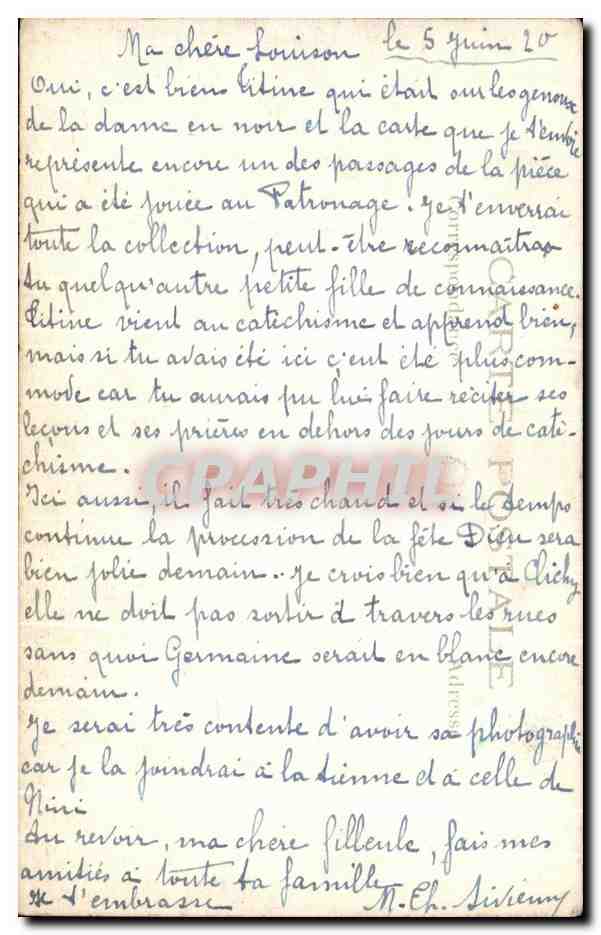 Ma chère Louison le 5 juin 20
Oui, c'est bien Titine qui était sur les genoux
de la dame en noir et la carte que je t'envoie
représente encore un des passages de la pièce
qui a été jouée au Patronage. Je t'enverrai
toute la collection, peut-être reconnaîtras
tu quelqu'autre petite fille de connaissance.
Titine vient au catéchisme et apprend bien,
mais si tu avais été ici c'eut été plus com-
mode car tu aurais pu lui faire réciter ses
leçons et ses prières en dehors des jours de caté-
chisme.
Ici aussi, il fait très chaud et si le temps
continue la procession de la fête Dieu sera
bien jolie demain. Je crois bien qu'à Clichy
elle ne doit pas sortir à travers les rues
sans quoi Germaine serait en blanc encore
demain.
Je serai très contente d'avoir sa photographie
car je la joindrai à la tienne et à celle de
Nini
Au revoir, ma chère filleule, fais mes
amitiés à toute ta famille
Je t'embrasse M. Ch.
CARTE POSTALE
Correspondance
Adresse
CPAPHIL